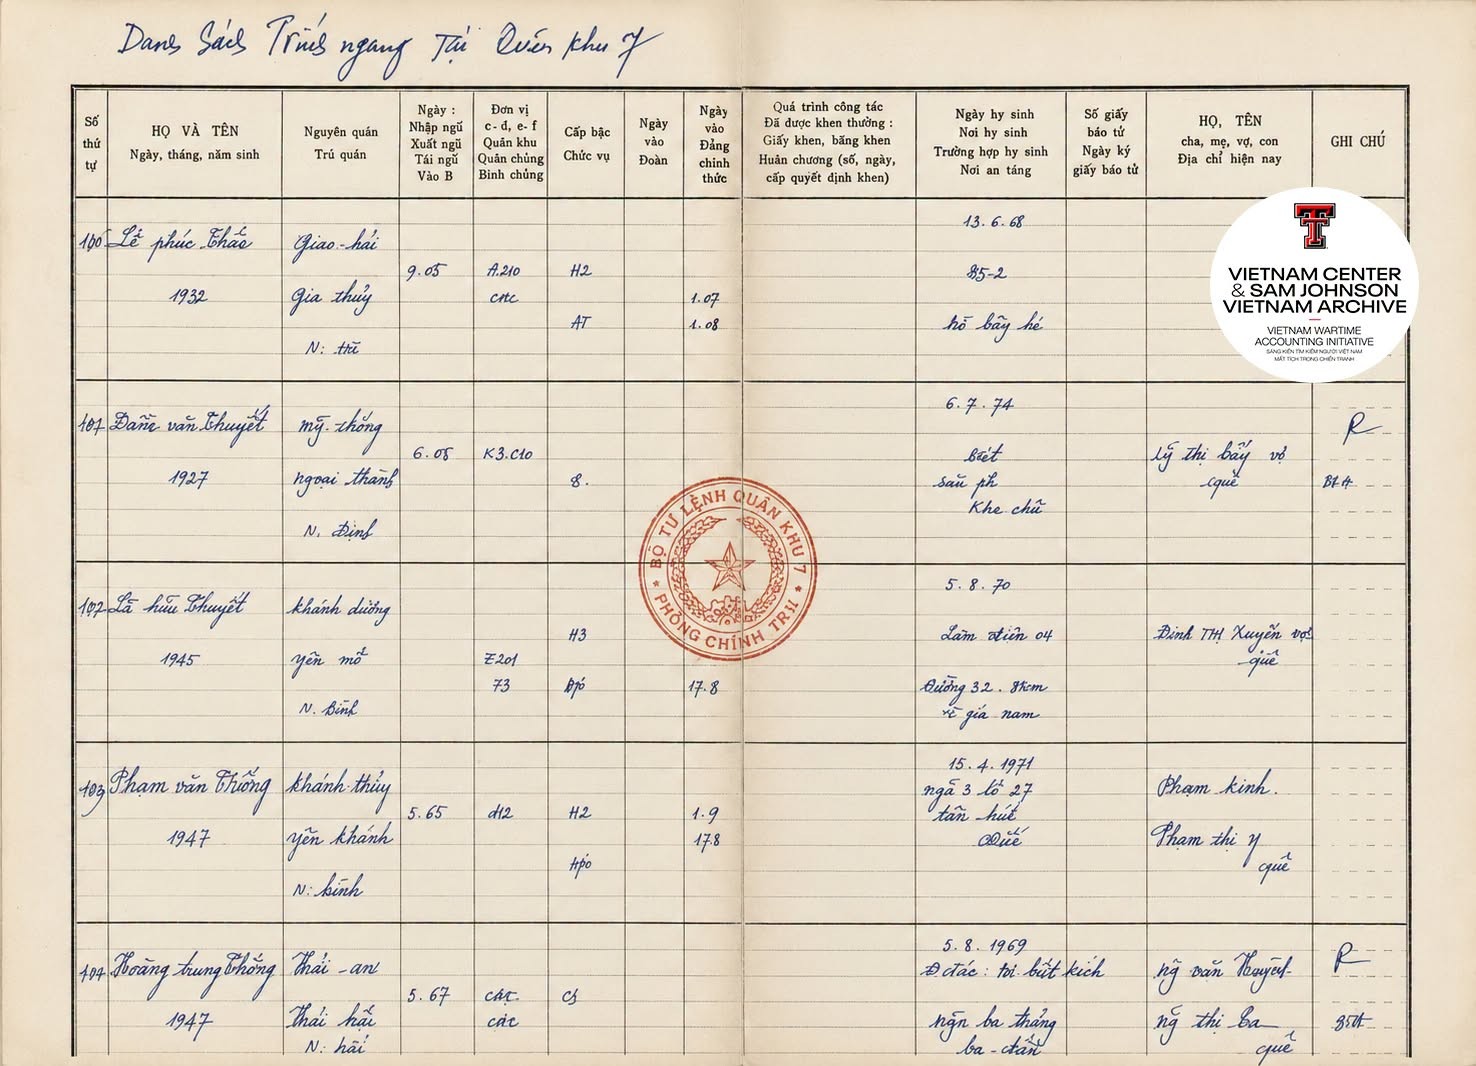 Danh Sách Trích ngang Tại Quân Khu 7
Số thứ tự
HỌ VÀ TÊN
Ngày, tháng, năm sinh
Nguyên quán
Trú quán
Ngày :
Nhập ngũ
Xuất ngũ
Tái ngũ
Vào B
Đơn vị
c- d, e- f
Quân khu
Quân chủng
Binh chủng
Cấp bậc
Chức vụ
Ngày
vào
Đoàn
Ngày
vào
Đảng
chính
thức
Quá trình công tác
Đã được khen thưởng :
Giấy khen, bằng khen
Huân chương (số, ngày,
cấp quyết định khen)
Ngày hy sinh
Nơi hy sinh
Trường hợp hy sinh
Nơi an táng
Số giấy
báo tử
Ngày ký
giấy báo tử
HỌ, TÊN
cha, mẹ, vợ, con
Địa chỉ hiện nay
GHI CHÚ
Lê phúc
1932
Giao-hải
Gia thủy
9.05
A.210
H2
AT
1.07
1.08
13.6.68
85-2
hồ bẫy hé
văn Thuyết
1927
mỹ-thống
ngoại thành
N. Định
6.05
K3.C10
8.
6.7.74
Khe chữ
lý thị bẩy vợ
quê
R
Lã hữu Thuyết
1945
khánh dương
yên mô
N. Bình
Z201
73
H3
17.8
5.8.70
04
Đường 32. 8km
về gia nam
Đinh THỊ Xuyến vợ
quê
103
Phạm văn Thống
1947
khánh thủy
yên khánh
N: bình
5.65
d12
H2
1.9
17.8
15.4.1971
ngã 3 lô 27
tân hút
Phạm kinh.
Phạm thị y
quê
104
Hoàng trung Thống
1947
Thái-an
Thái hải
5.67
5.8.1969
Đ tác: tơi bứt kích
ngân ba tháng
ng văn
ng thị ba
quê
R
BỘ TƯ LỆNH QUÂN KHU 7
PHÒNG CHÍNH TRỊ
VIETNAM CENTER
& SAM JOHNSON
VIETNAM ARCHIVE
VIETNAM WARTIME
ACCOUNTING INITIATIVE
SÁNG KIẾN TÌM KIẾM NGƯỜI VIỆT NAM
MẤT TÍCH TRONG CHIẾN TRANH